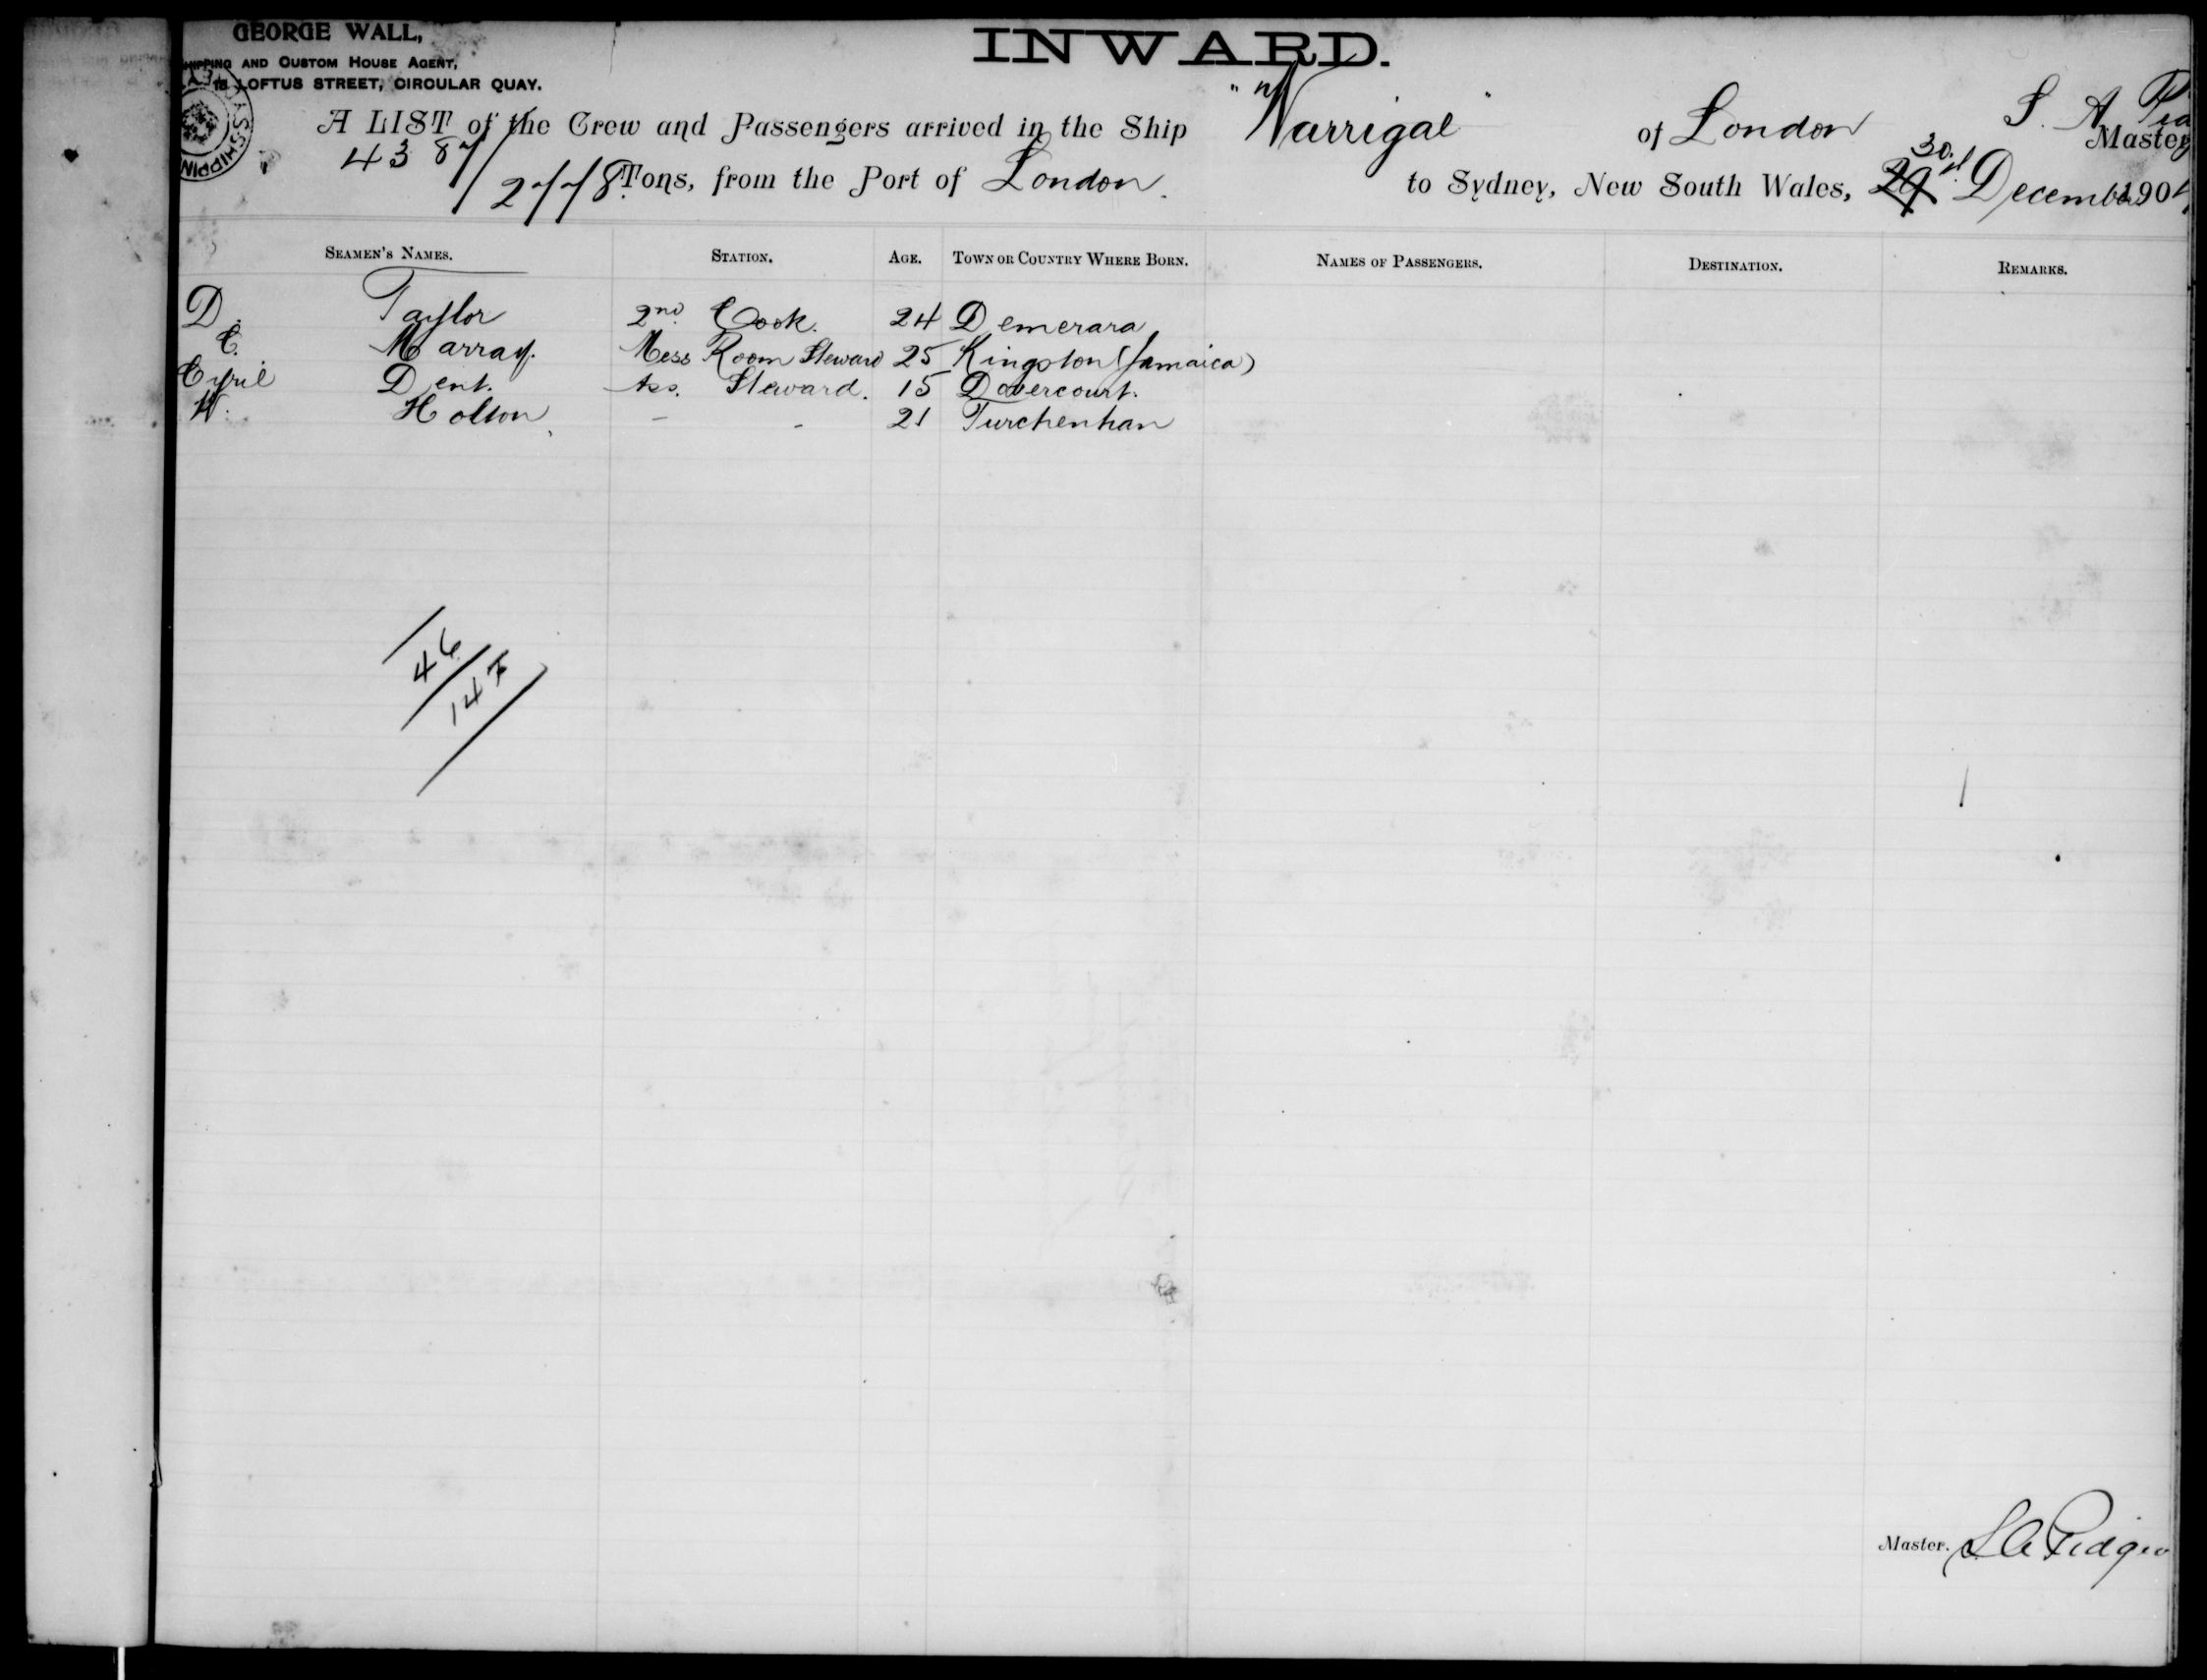 GEORGE WALL,
SHIPPING AND CUSTOM HOUSE AGENT,
LOFTUS STREET, CIRCULAR QUAY.
INWARD.
A LIST of the Crew and Passengers arrived in the Ship "Warrigal" of London S. A. Master
4387/2778 Tons, from the Port of London. to Sydney, New South Wales, 29 30 December 1904
SEAMEN'S NAMES. STATION. AGE. TOWN OR COUNTRY WHERE BORN. NAMES OF PASSENGERS. DESTINATION. REMARKS.
D. Taylor 2nd Cook. 24 Demerara
C. Marray. Mess Room Steward 25 Kingston (Jamaica)
Cyril Dent. Ass. Steward. 15 Dovercourt.
W. Holton - - 21
46
147
Master. S A Pidgeo